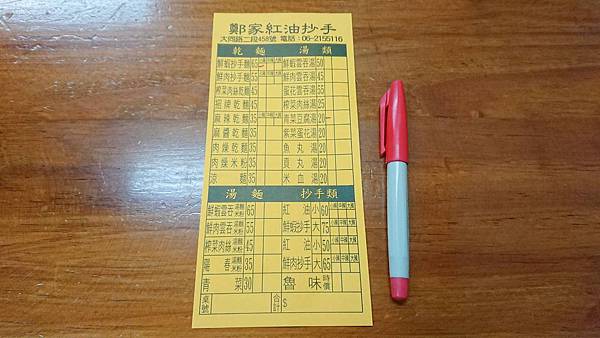 鄭家紅油抄手
大同路二段458號 電話:06-2155116
乾麵 湯類
鮮蝦抄手麵65 鮮蝦雲吞湯50
鮮肉抄手麵55 鮮肉雲吞湯45
榨菜肉絲乾麵45 蜜花雲吞湯55
招牌乾麵45 榨菜肉絲湯25
麻辣乾麵35 青菜豆腐湯20
麻醬乾麵35 紫菜蛋花湯20
肉燥乾麵35 魚丸湯20
肉燥米粉35 貢丸湯20
涼麵35 米血湯20
湯麵 抄手類
鮮蝦雲吞湯麵米粉65 紅油小60
鮮肉雲吞湯麵米粉55 鮮蝦抄手大75
榨菜肉絲湯麵米粉45 紅油小50
陽春湯麵米粉35 鮮肉抄手大65
青菜30 魯味時價
桌號 合計 $